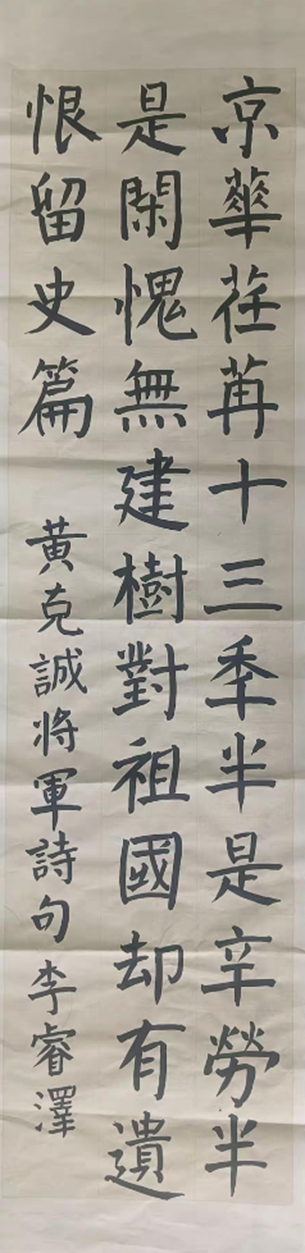 京華荏苒十三季半是辛勞半
是閑愧無建樹對祖國却有遺
恨留史篇
黃克誠將軍詩句李睿澤